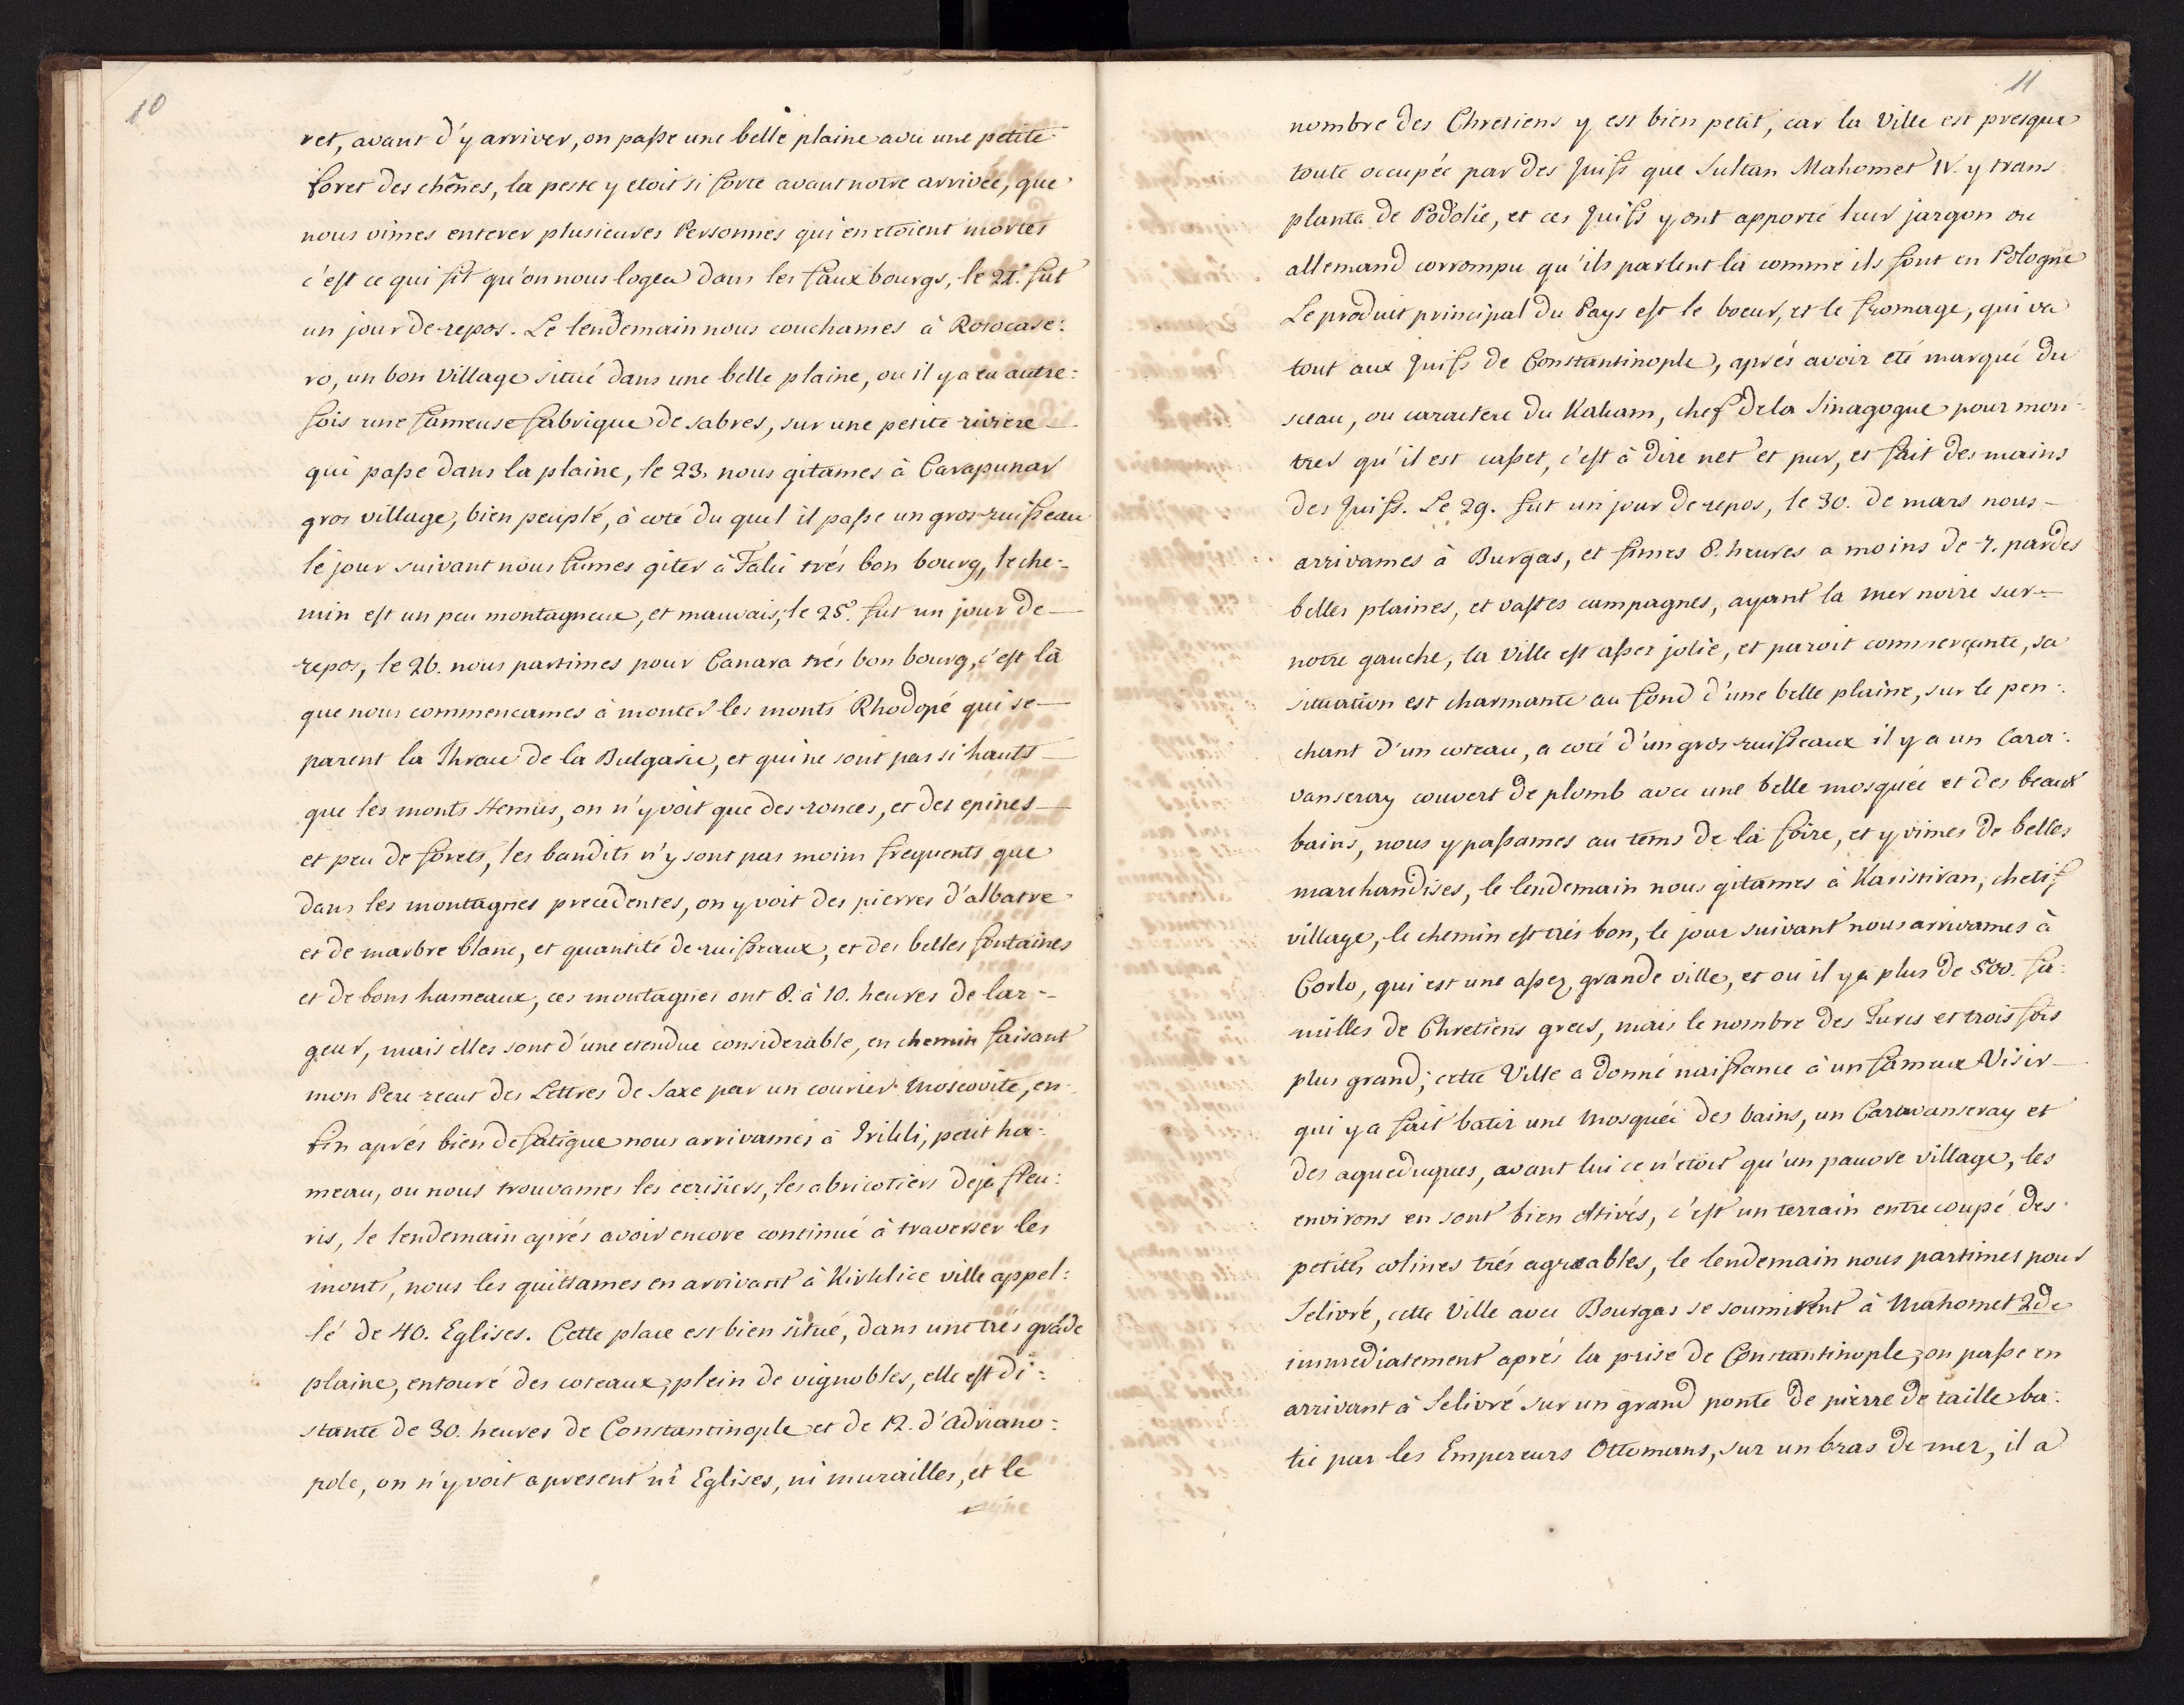 10
ret, avant d'y arriver, on passe une belle plaine avec une petite
foret des chênes, la peste y etoit si forte avant notre arrivée, que
nous vimes enterer plusieures Personnes qui en etoient mortes
c'est ce qui fit qu'on nous logea dans les fauxbourgs, le 21. fut
un jour de repos. Le lendemain nous couchames à Rosocase:
ro, un bon village situé dans une belle plaine, ou il y a eu autre:
fois une fameuse fabrique de sabres, sur une petite riviere
qui passe dans la plaine, le 23. nous gitames à Carapunar
gros village, bien peuplé, à coté du quel il passe un gros ruisseau
le jour suivant nous fumes giter à Falii trés bon bourg, le che:
min est un peu montagneux, et mauvais, le 25. fut un jour de
repos, le 26. nous partimes pour Canara trés bon bourg, c'est là
que nous commencames à monter les monts Rhodopé qui se
parent la Thrace de la Bulgarie, et qui ne sont pas si hauts
que les monts Hemus, on n'y voit que des ronces, et des epines
et peu de forets, les bandits n'y sont pas moins frequents que
dans les montagnes precedentes, on y voit des pierres d'albatre
et de marbre blanc, et quantité de ruisseaux, et des belles fontaines
et de bons hameaux, ces montagnes ont 8. à 10. heures de lar:
geur, mais elles sont d'une etendue considerable, en chemin faisant
mon Pere recut des Lettres de Saxe par un courier Moscovite, en
fin aprés bien de fatigue nous arrivames à Irikli, petit ha:
meau, ou nous trouvames les cerisiers, les abricotiers deja fleu:
ris, le lendemain aprés avoir encore continué à traverser les
monts, nous les quittames en arrivant à Kirklice ville appel:
lé de 40. Eglises. Cette place est bien situé, dans une trés gräde
plaine, entouré des coteaux, plein de vignobles, elle est di:
stante de 30. heures de Constantinople et de 12. d'Adriano:
pole, on n'y voit apresent ni Eglises, ni murailles, et le
11
nombre des Chretiens y est bien petit, car la Ville est presque
toute occupée par des Juifs que Sultan Mahomet IV. y trans
planta de Podolie, et ces Juifs y ont apporté leur jargon ou
allemand corrompu qu'ils parlent là comme ils font en Pologne
Le produit principal du Pays est le boeur, et le fromage, qui va
tout aux Juifs de Constantinople, aprés avoir eté marqué du
sceau, ou caractere du Kakam, chef de la Sinagogue pour mon:
trer qu'il est casset, c'est à dire net et pur, et fait des mains
des Juifs. Le 29. fut un jour de repos, le 30. de mars nous
arrivames à Burgas, et fimes 8. heures a moins de 7. par des
belles plaines, et vastes campagnes, ayant la mer noire sur
notre gauche, la ville est asses jolie, et paroit commerçante, sa
situation est charmante au fond d'une belle plaine, sur le pen:
chant d'un coteau, a coté d'un gros ruisseaux il y a un Cara:
vanseray couvert de plomb avec une belle mosquée et des beaux
bains, nous y passames au tems de la foire, et y vimes de belles
marchandises, le lendemain nous gitames à Karistiran, chetif
village, le chemin est trés bon, le jour suivant nous arrivames à
Corlo, qui est une assez grande ville, et ou il y a plus de 500. fa:
milles de Chretiens grecs, mais le nombre des Turcs et trois fois
plus grand; cette Ville a donné naissance à un fameux Visir
qui y a fait batir une Mosquée des bains, un Caravanseray et
des aqueduques, avant lui ce n'etoit qu'un pauvre village, les
environs en sont bien cltivés, c'est un terrain entrecoupé des
petites colines trés agreables, le lendemain nous partimes pour
Selivré, cette Ville avec Bourgas se soumirent à Mahomet 2de
immediatement aprés la prise de Constantinople, on passe en
arrivant à Selivré sur un grand ponte de pierre de taille ba:
tie par les Empereurs Ottomans, sur un bras de mer, il a